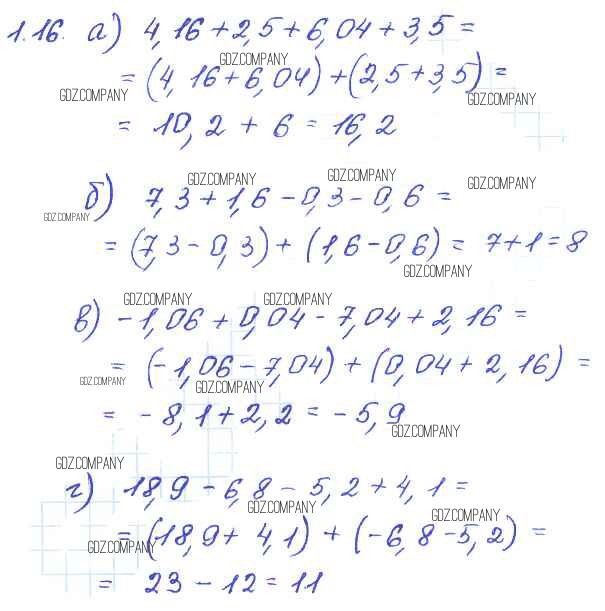 1.16. а) 4,16 + 2,5 + 6,04 + 3,5 =
GDZ.COMPANY
= (4,16 + 6,04) + (2,5 + 3,5) =
GDZ.COMPANY GDZ.COMPANY
= 10,2 + 6 = 16,2
GDZ.COMPANY GDZ.COMPANY GDZ.COMPANY
б) 7,3 + 1,6 - 0,3 - 0,6 =
GDZ.COMPANY
= (7,3 - 0,3) + (1,6 - 0,6) = 7 + 1 = 8
GDZ.COMPANY
GDZ.COMPANY GDZ.COMPANY
в) -1,06 + 0,04 - 7,04 + 2,16 =
= (-1,06 - 7,04) + (0,04 + 2,16) =
GDZ.COMPANY GDZ.COMPANY
= -8,1 + 2,2 = -5,9
GDZ.COMPANY
GDZ.COMPANY
г) 18,9 - 6,8 - 5,2 + 4,1 =
GDZ.COMPANY GDZ.COMPANY
= (18,9 + 4,1) + (-6,8 - 5,2) =
GDZ.COMPANY
= 23 - 12 = 11